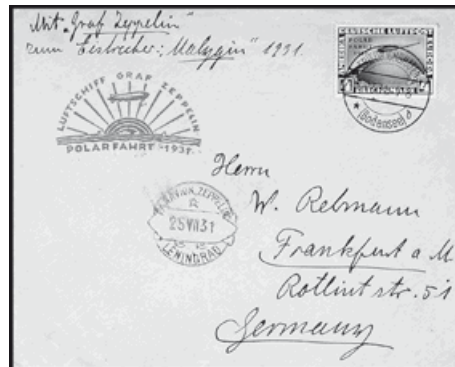 Mit "Graf Zeppelin"
zum Eisbrecher: "Malygin" 1931.
DEUTSCHE LUFTPOST
POLAR
FAHRT
LUFTSCHIFF GRAF ZEPPELIN
POLARFAHRT 1931
(Bodensee)
25 VII 31
LENINGRAD
Herrn
W. Rebmann
Frankfurt a M.
Rotlintstr. 51
Germany